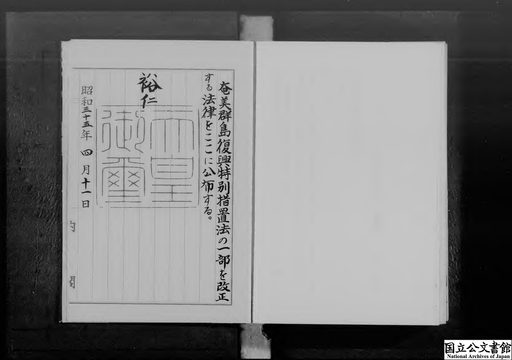 奄美群島復興特別措置法の一部を改正
する法律をここに公布する。
裕仁
天皇
御璽
昭和三十五年四月十一日
内
閣
国立公文書館
National Archives of Japan